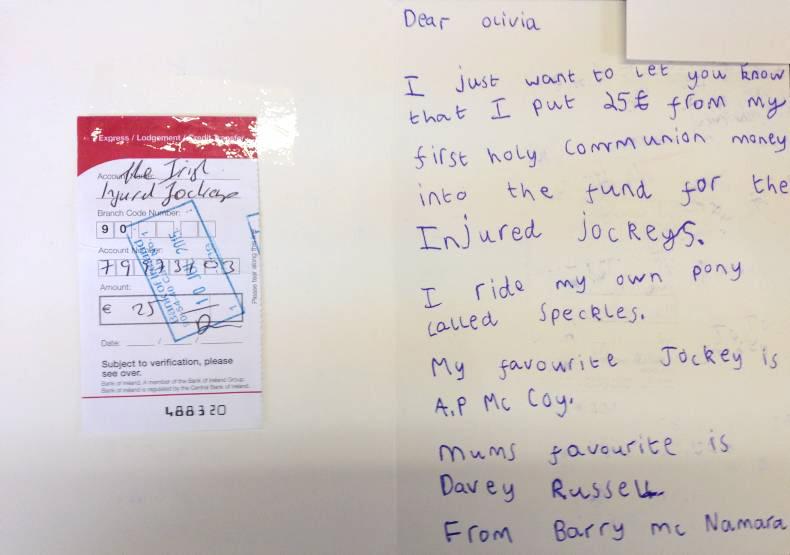 Express / Lodgement / Credit Transfer
Account Name: The Irish
Injured Jockeys
Branch Code Number:
90
Account Number:
Amount:
€ 25
Date: / /
Subject to verification, please
see over.
Bank of Ireland. A member of the Bank of Ireland Group.
Bank of Ireland is regulated by the Central Bank of Ireland.
488320
Please tear along this
Bank of Ireland
Dear olivia
I just want to let you know
that I put 25€ from my
first holy communion money
into the fund for the
Injured jockeys.
I ride my own pony
called Speckles.
My favourite Jockey is
A.P Mc Coy.
Mums favourite is
Davey Russell
From Barry mc Namara